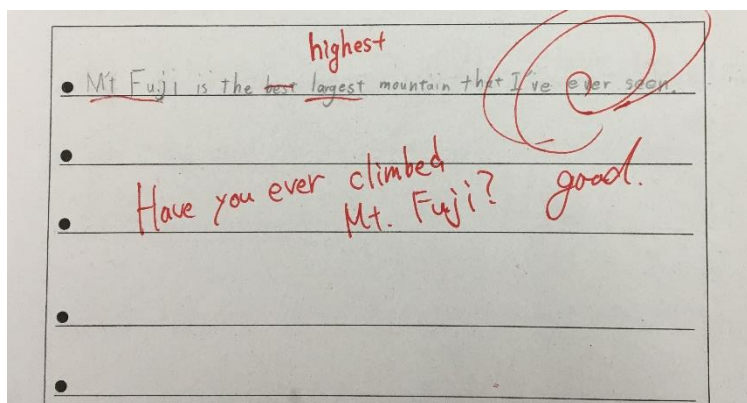 highest
Mt Fuji is the best largest mountain that I've ever seen.
Have you ever climbed
Mt. Fuji? good.